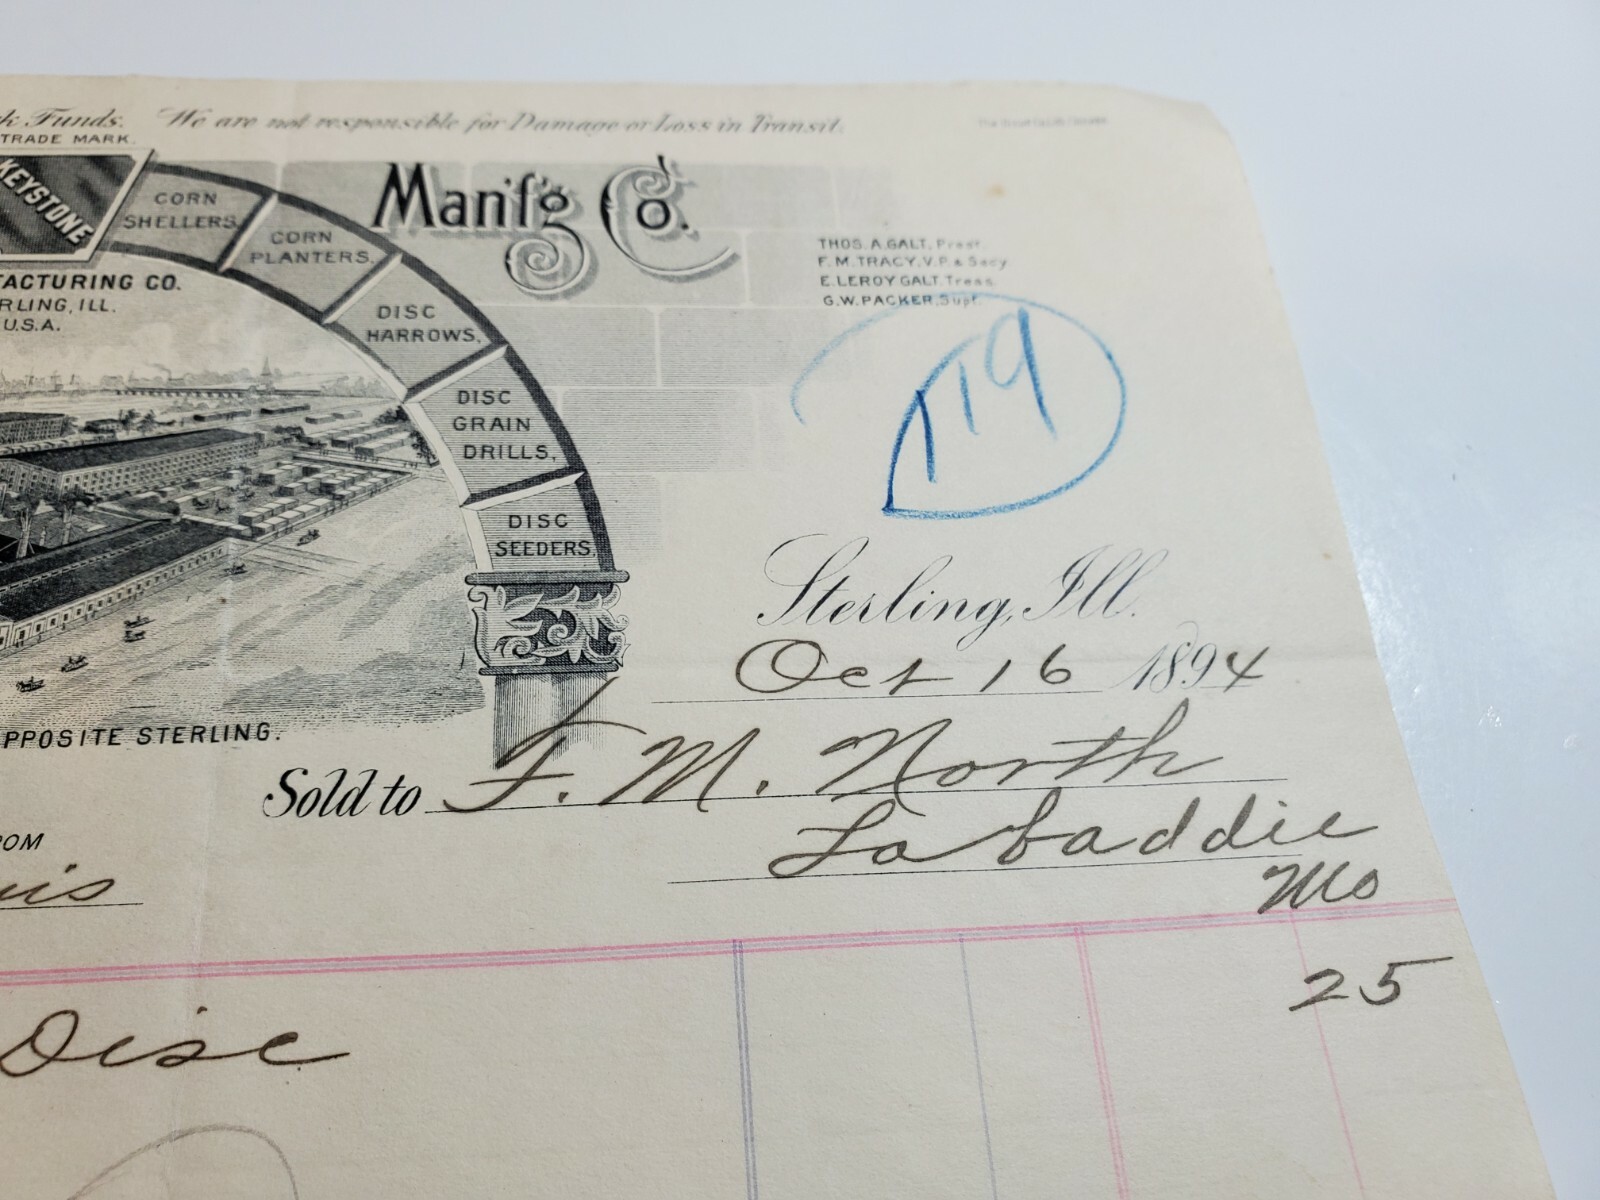 k Funds. We are not responsible for Damage or Loss in Transit.
TRADE MARK.
KEYSTONE
CORN SHELLERS.
CORN PLANTERS.
DISC HARROWS.
DISC GRAIN DRILLS.
DISC SEEDERS.
Man'f'g Co.
THOS. A. GALT, Prest.
F. M. TRACY, V.P. & Secy.
E. LEROY GALT, Treas.
G. W. PACKER, Supt.
FACTURING CO.
RLING, ILL.
U.S.A.
119
Sterling, Ill.
Oct 16 1894
PPOSITE STERLING.
Sold to F. M. North
Labaddie
Mo
OM
uis
25
Disc